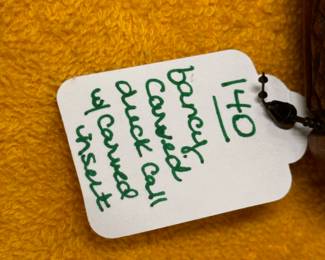 140
bancy
carved
duck call
w/carved
insert